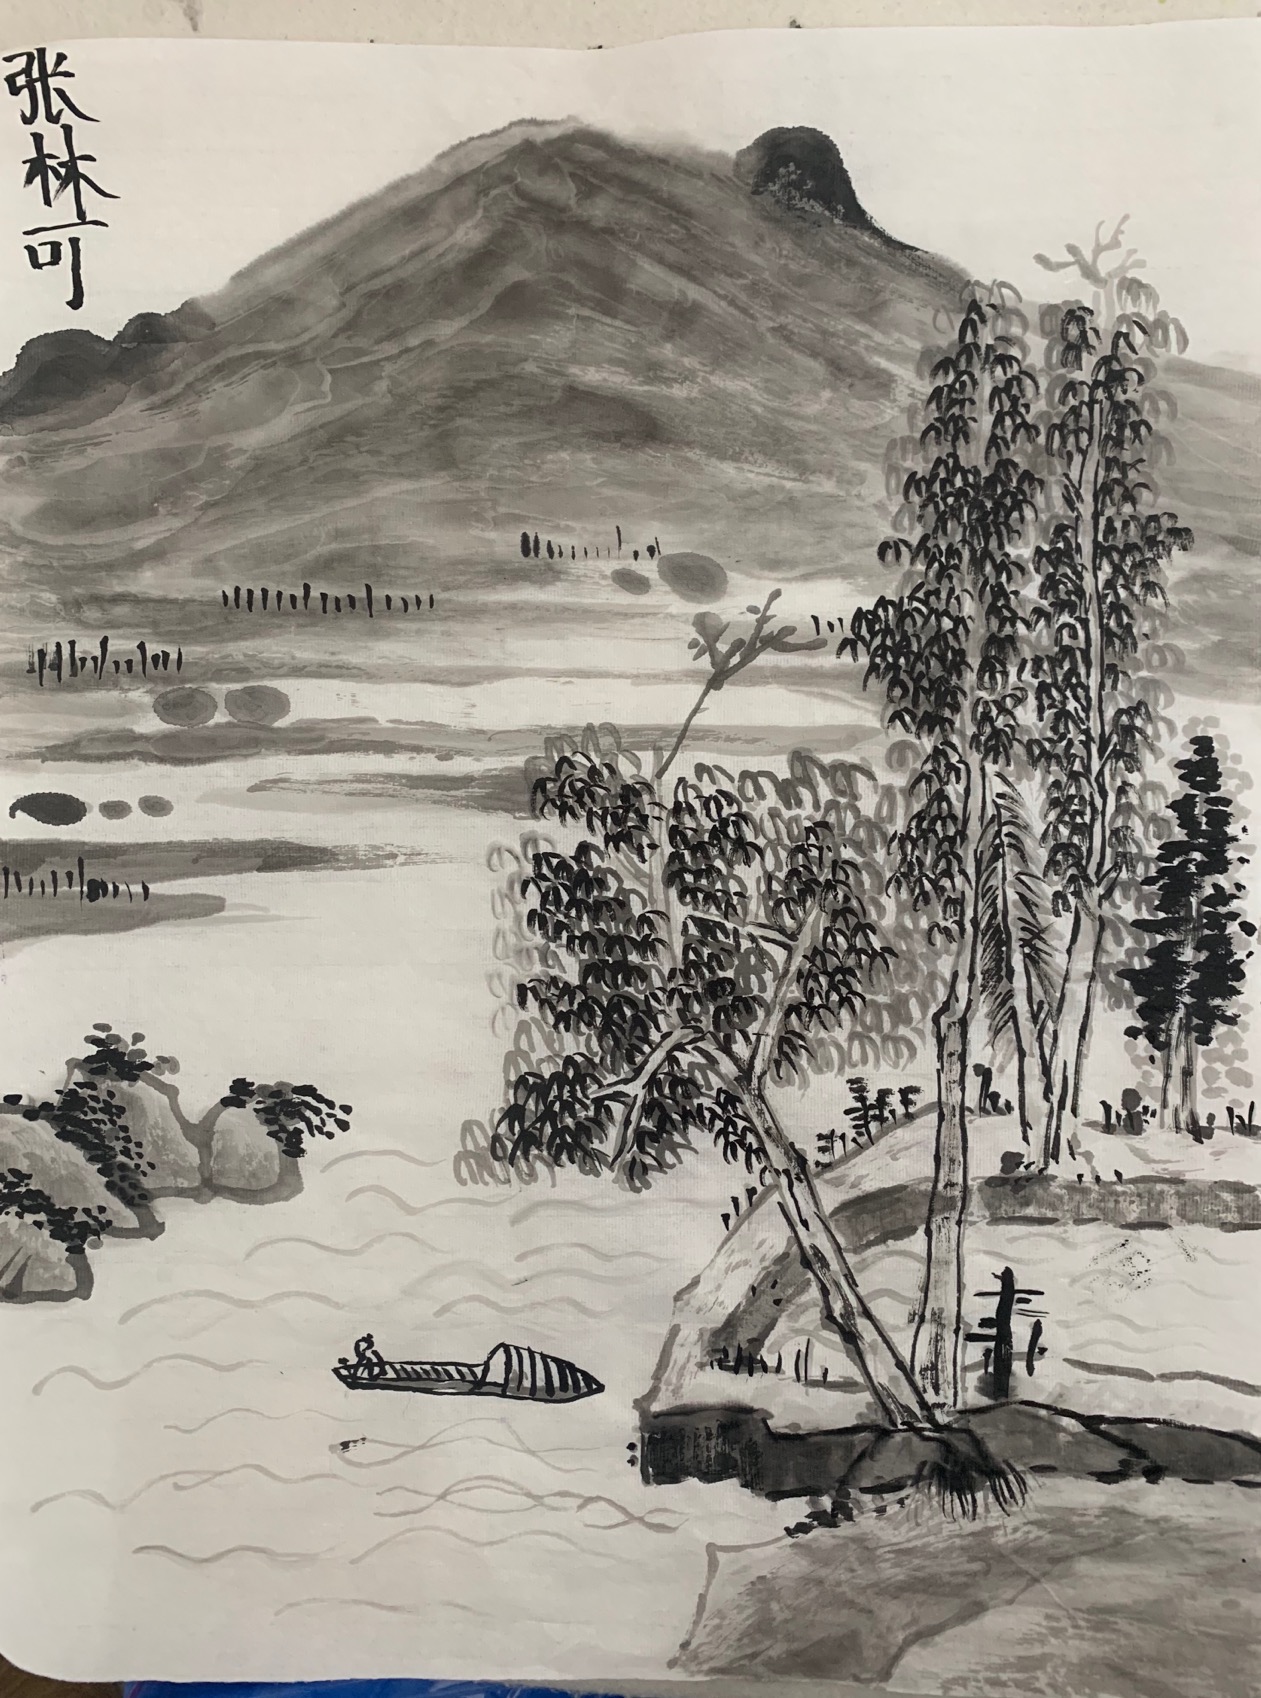 张林可